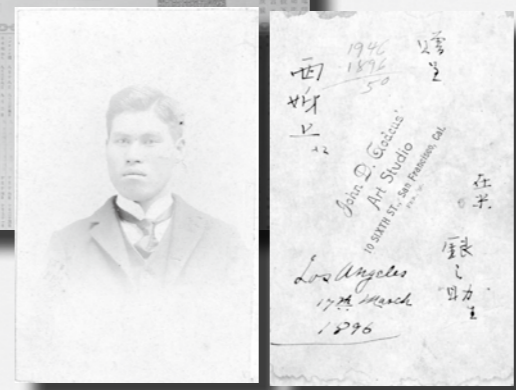 贈
呈
1946
1896
50
John D. Godeus'
Art Studio
10 SIXTH ST., San Francisco, Cal.
在米
銀之助
Los Angeles
17th March
1896